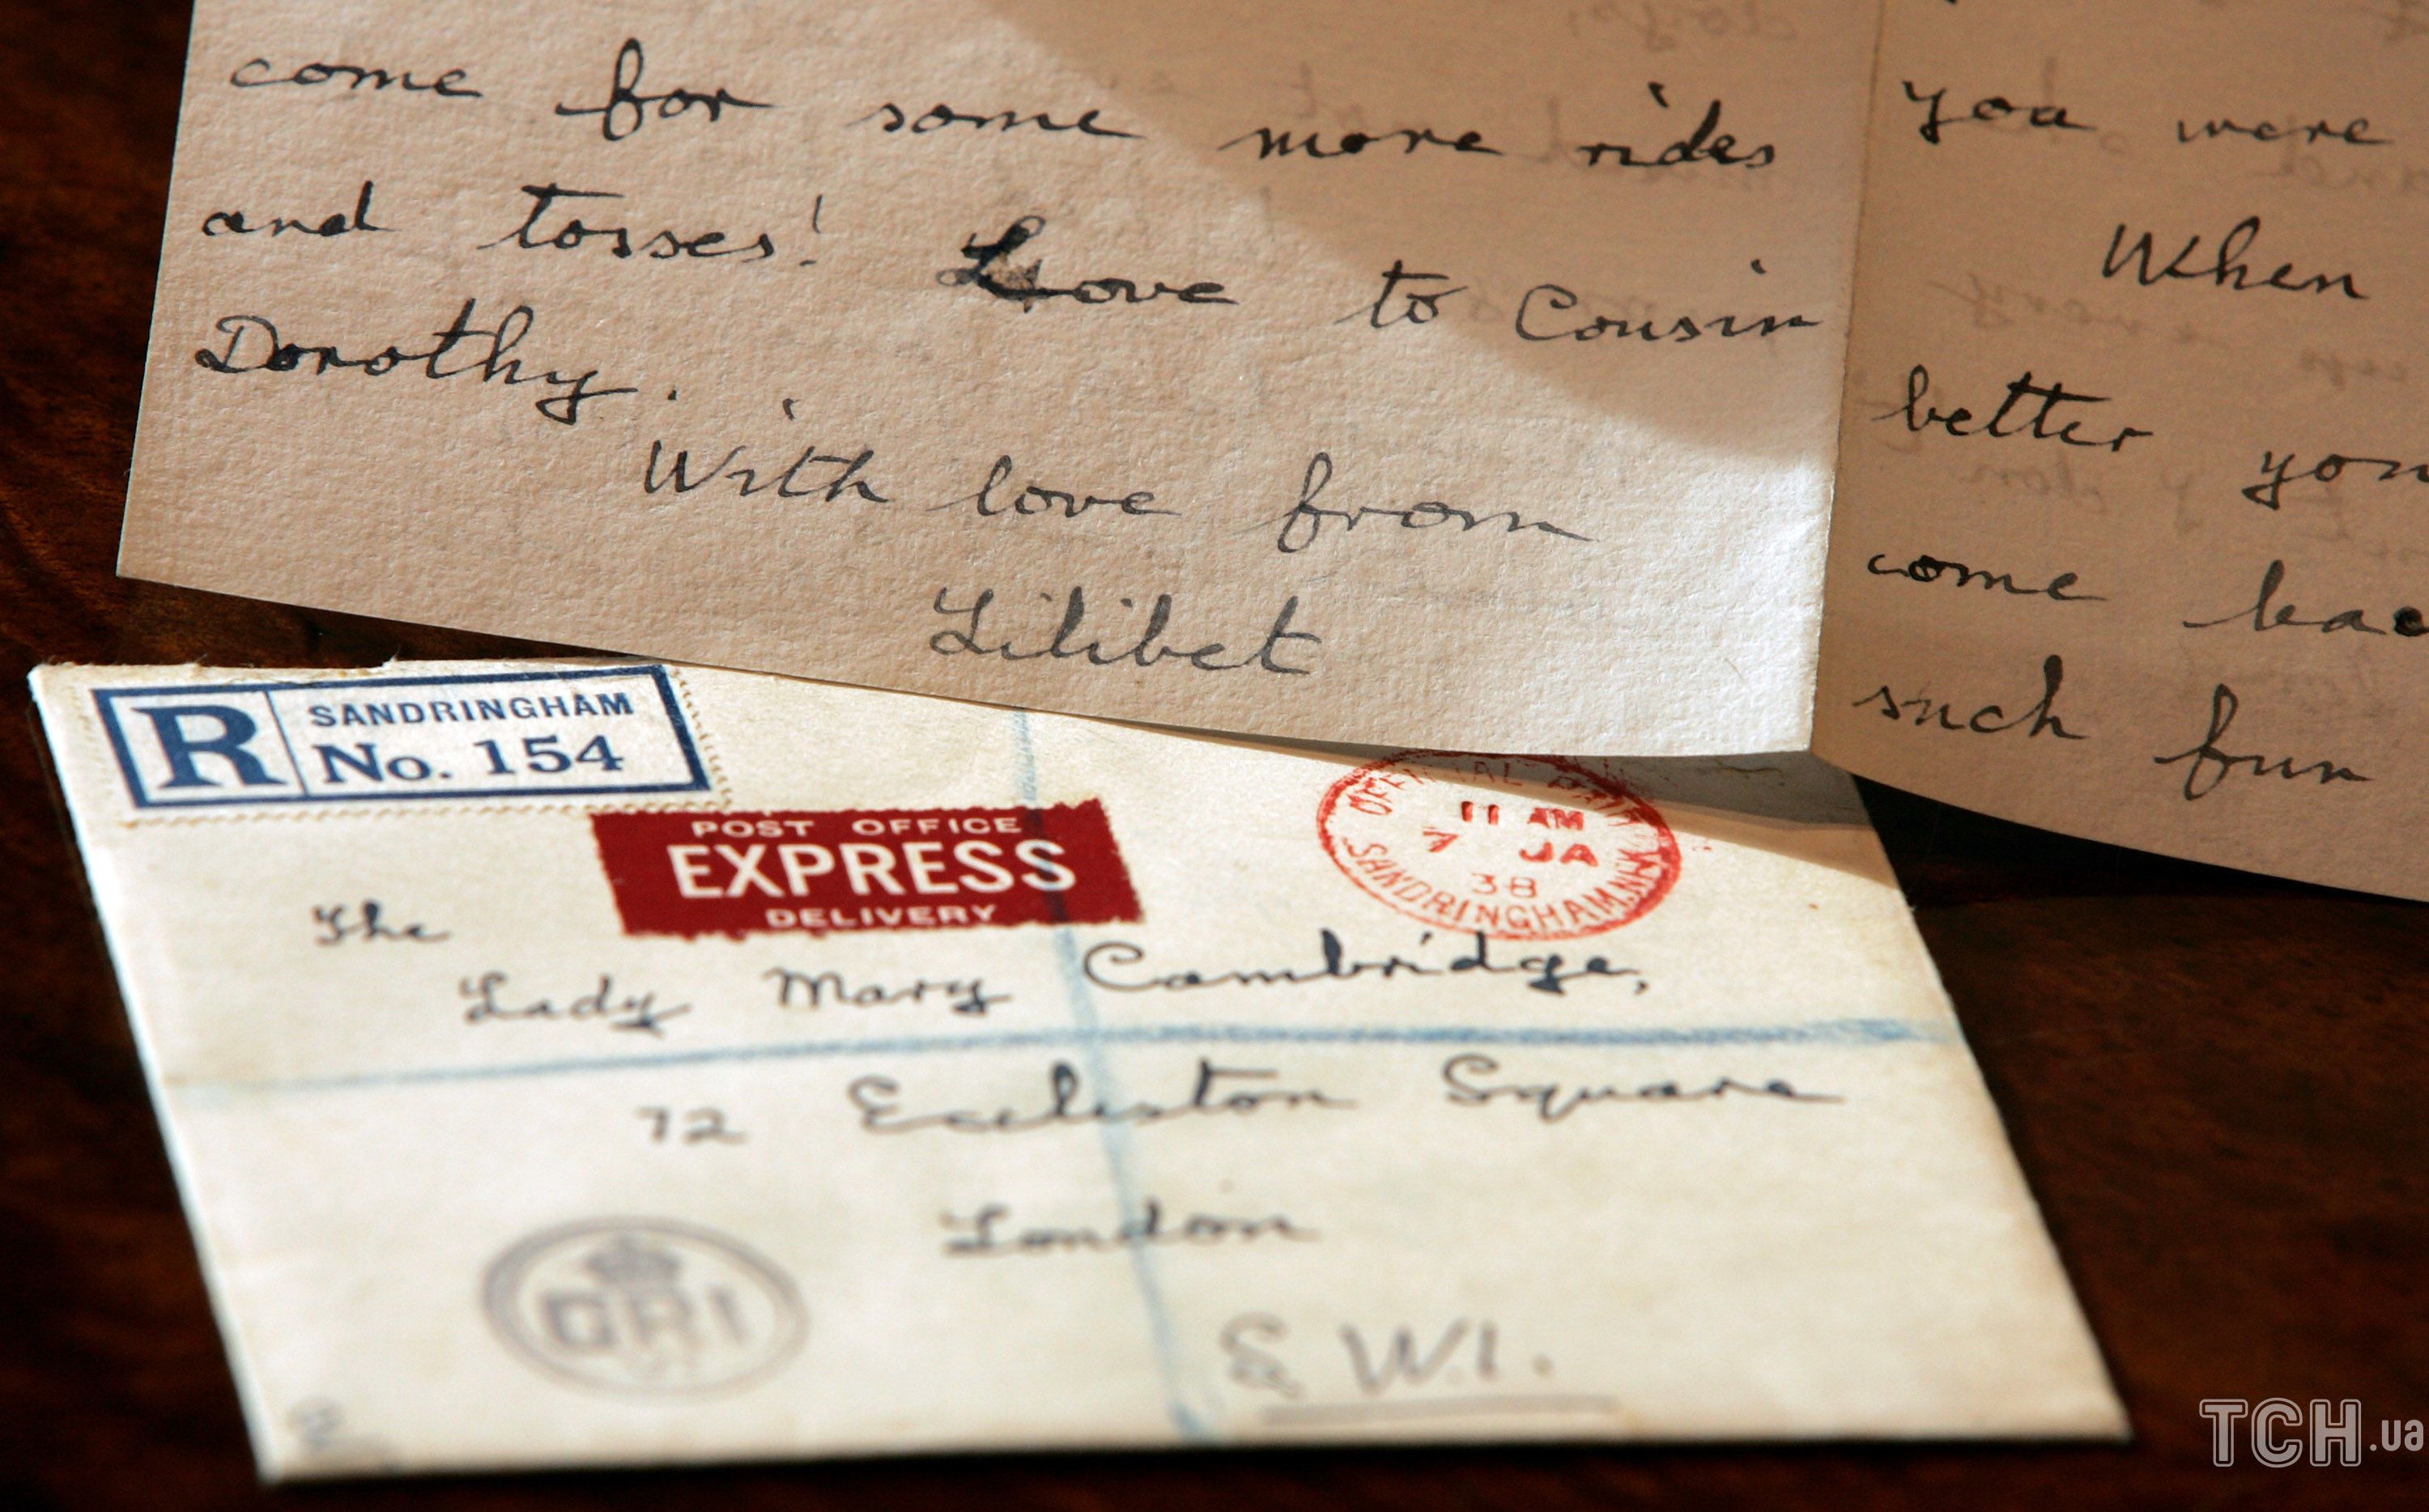 come for some more rides
and tosses! Love to Cousin
Dorothy.
With love from
Lilibet
you were
When
better you
come bac
such fun
R SANDRINGHAM
No. 154
POST OFFICE
EXPRESS
DELIVERY
OFFICIAL PAID
11 AM
7 JA
38
SANDRINGHAM
The
Lady Mary Cambridge,
72 Eccleston Square
London
S.W.1.
GRI
TCH.ua